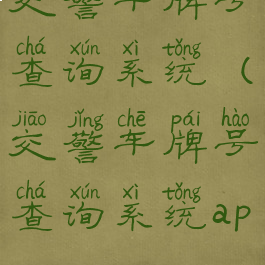 交警车牌号
chá xún xì tǒng
查询系统（
jiāo jǐng chē pái hào
交警车牌号
chá xún xì tǒng
查询系统ap